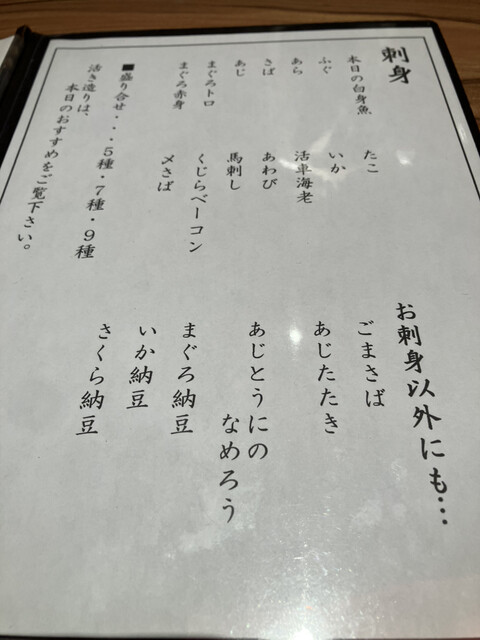 刺身
本日の白身魚
ふぐ
あら
さば
あじ
まぐろトロ
まぐろ赤身
たこ
いか
活車海老
あわび
馬刺し
くじらベーコン
〆さば
■盛り合せ・・・５種・７種・９種
活き造りは、
本日のおすすめをご覧下さい。
お刺身以外にも…
ごまさば
あじたたき
あじとうにの
なめろう
まぐろ納豆
いか納豆
さくら納豆